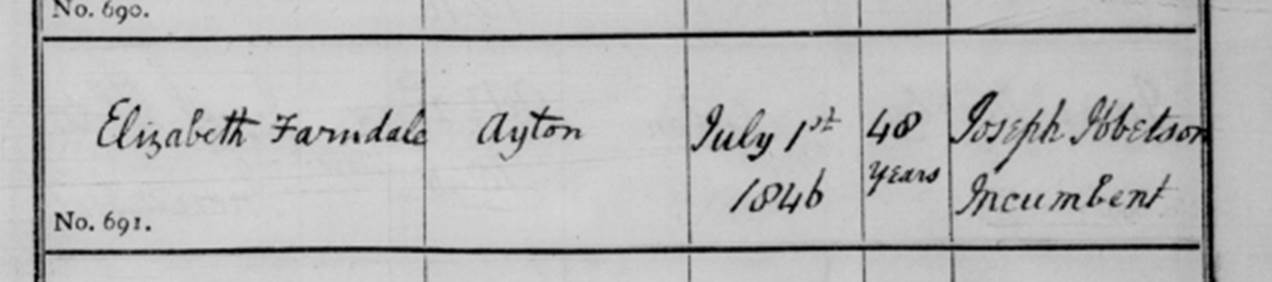 No. 690.
Elizabeth Farndale Ayton July 1st 48 Joseph Ibbetson
1846 Years Incumbent
No. 691.